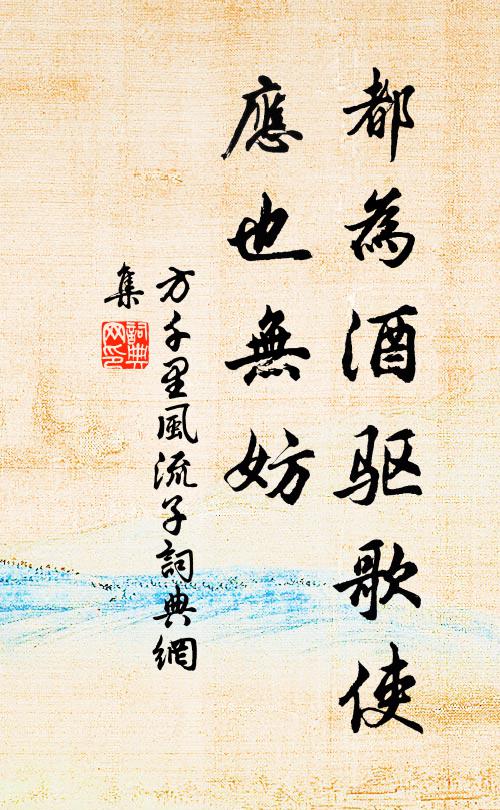 都為酒驱歌使
應也無妨
方千里風流子詞典網
集
詞典
网印